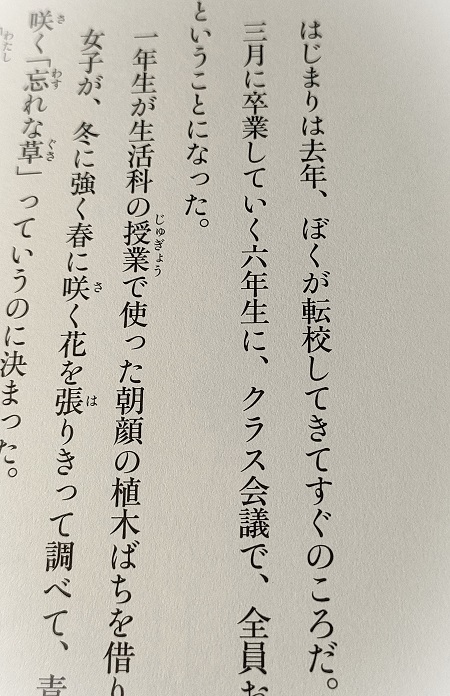 はじまりは去年、ぼくが転校してきてすぐのころだ。
三月に卒業していく六年生に、クラス会議で、全員お
ということになった。
一年生が生活科の授業で使った朝顔の植木ばちを借り
女子が、冬に強く春に咲く花を張りきって調べて、青
咲く「忘れな草」っていうのに決まった。